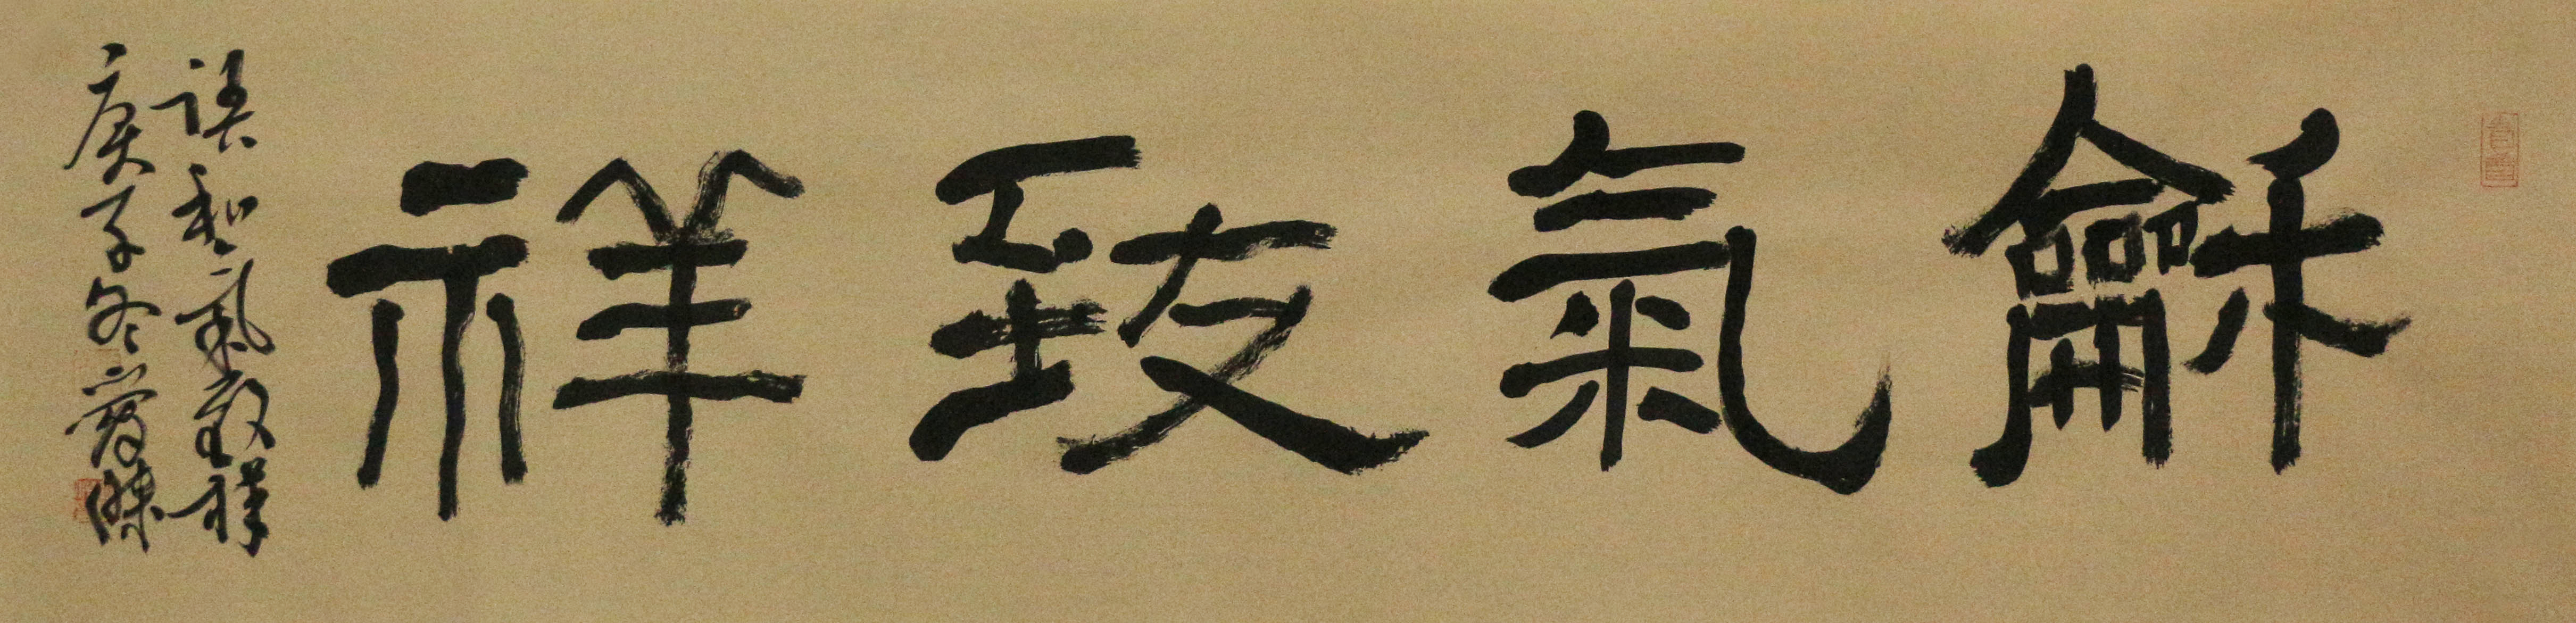 龢氣致祥
語和氣致祥
庚子冬